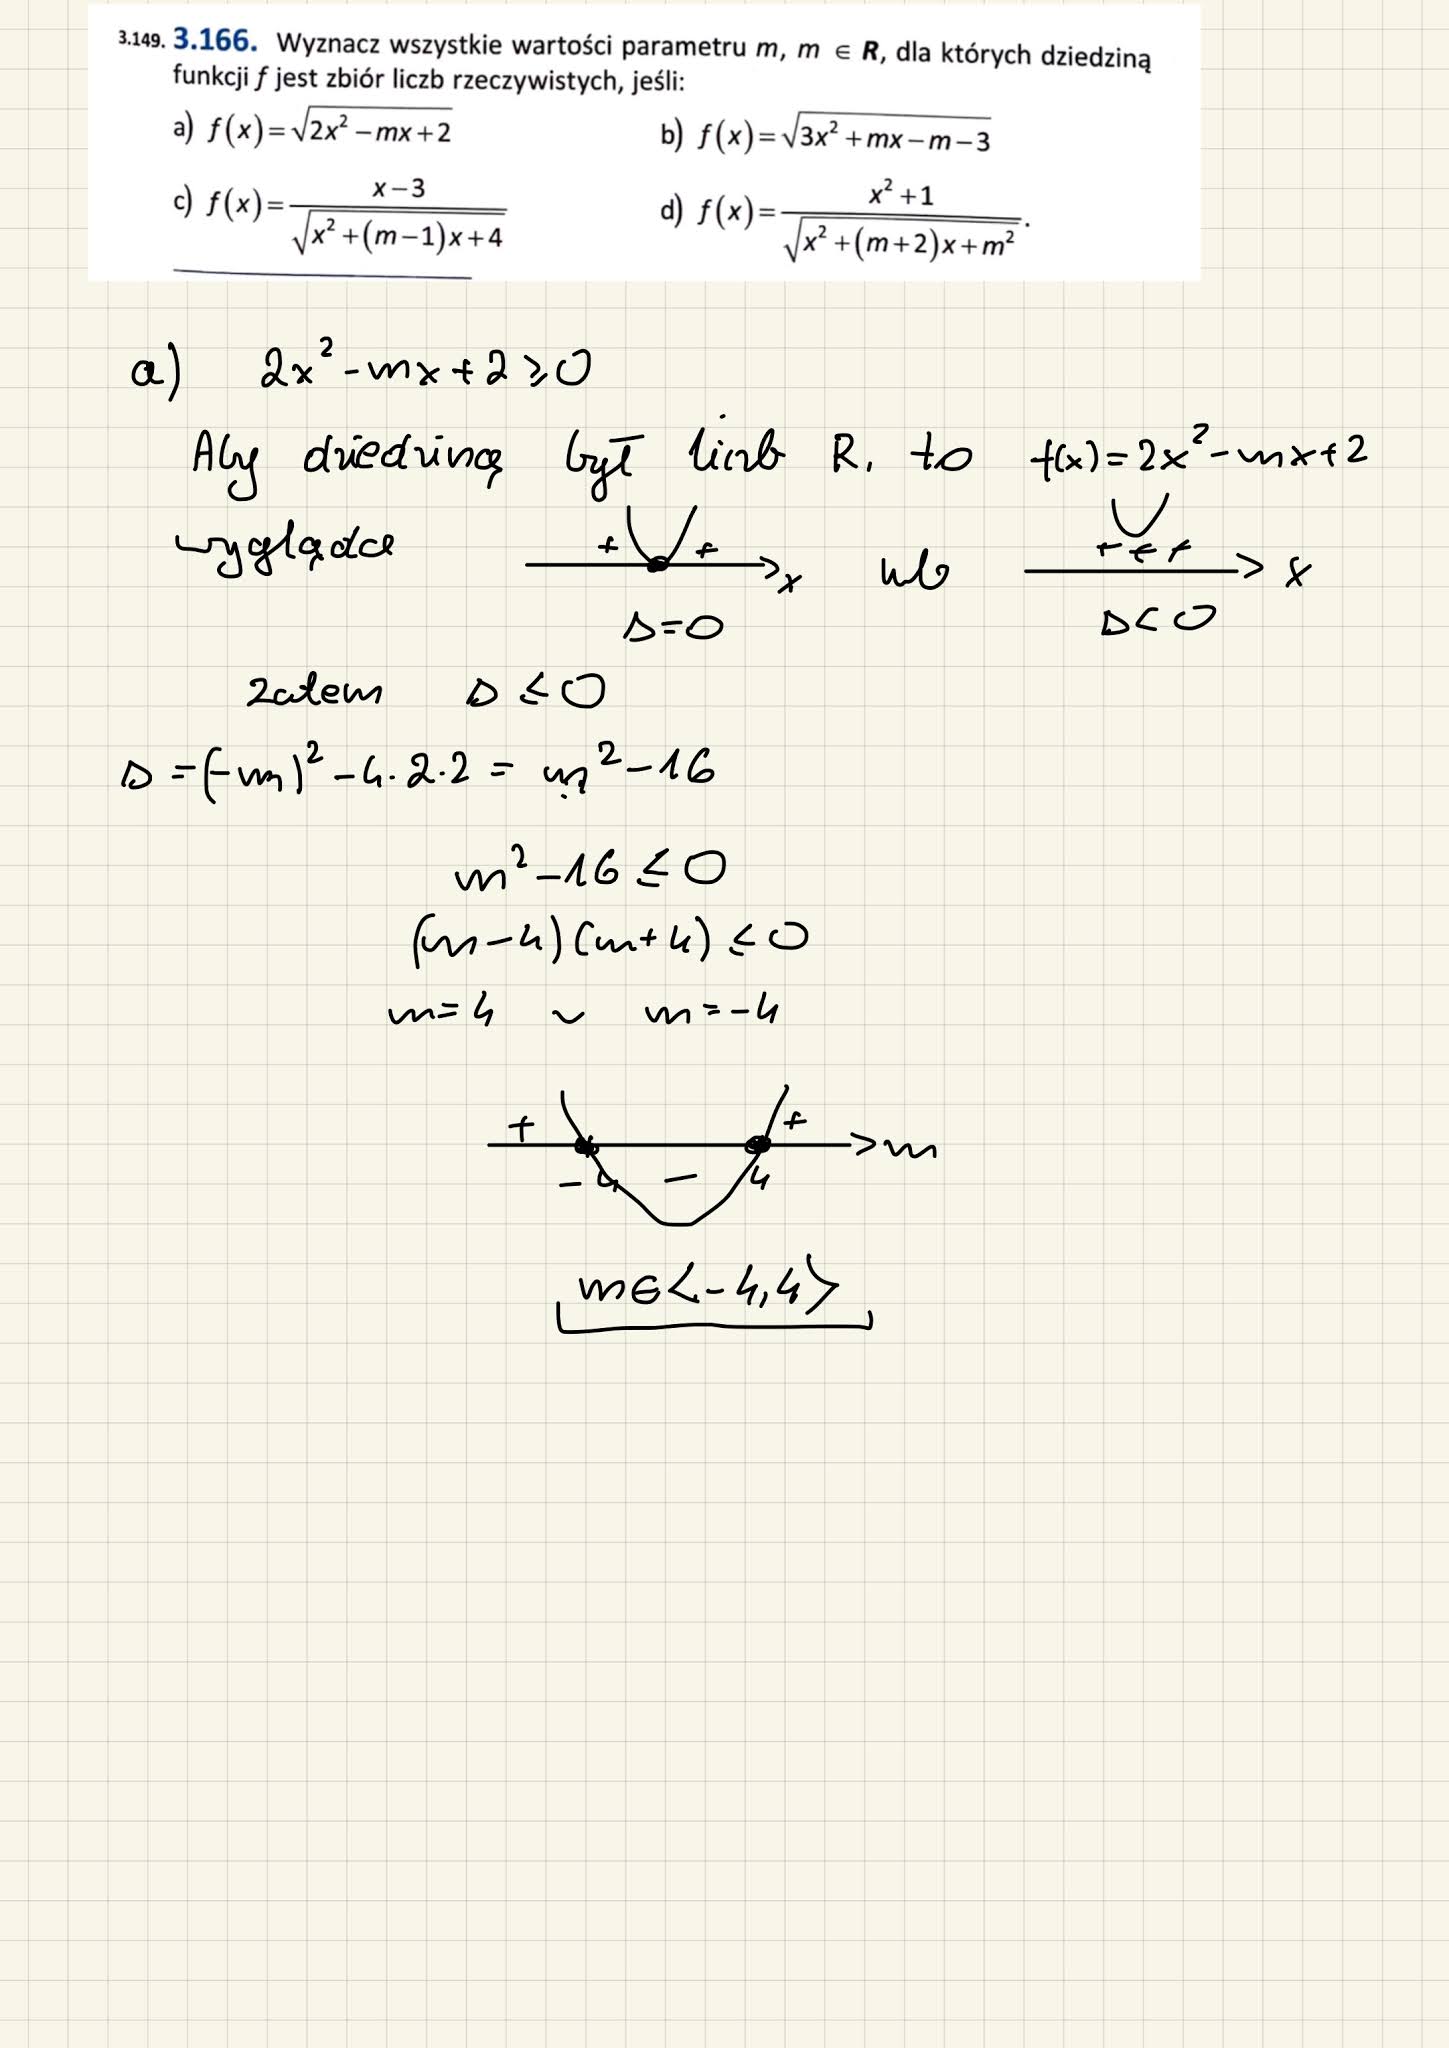 3.149. 3.166. Wyznacz wszystkie wartości parametru m, m ∈ R, dla których dziedziną
funkcji f jest zbiór liczb rzeczywistych, jeśli:
a) f(x)=√(2x² − mx + 2) b) f(x)=√(3x² + mx − m − 3)
c) f(x)= (x−3)/√(x² + (m−1)x + 4) d) f(x)= (x² + 1)/√(x² + (m+2)x + m²).
a) 2x² - mx + 2 ≥ 0
Aby dziedziną był liczb R, to f(x) = 2x² - mx + 2
wygląda + + x lub + + + x
Δ = 0 Δ < 0
zatem Δ ≤ 0
Δ = (-m)² - 4·2·2 = m² - 16
m² - 16 ≤ 0
(m - 4)(m + 4) ≤ 0
m = 4 ∨ m = -4
+ + m
-4 − 4
m ∈ <-4,4>